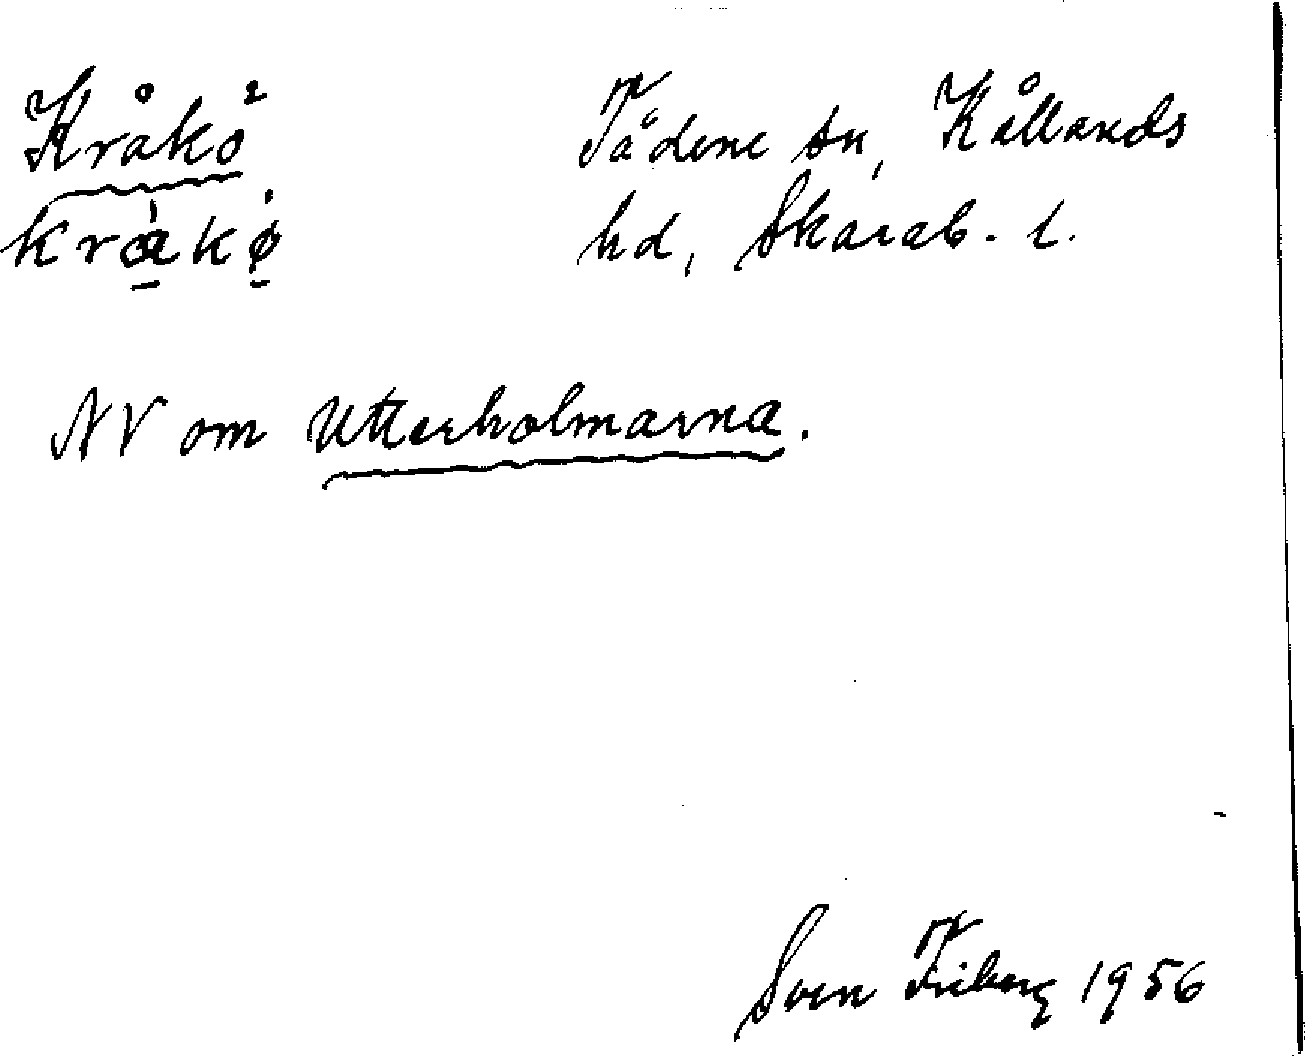 Kråkö
Tådene sn, Kållands
kråkø
hd, Skarab. l.
NV om Utterholmarna.
Sven Friberg 1956